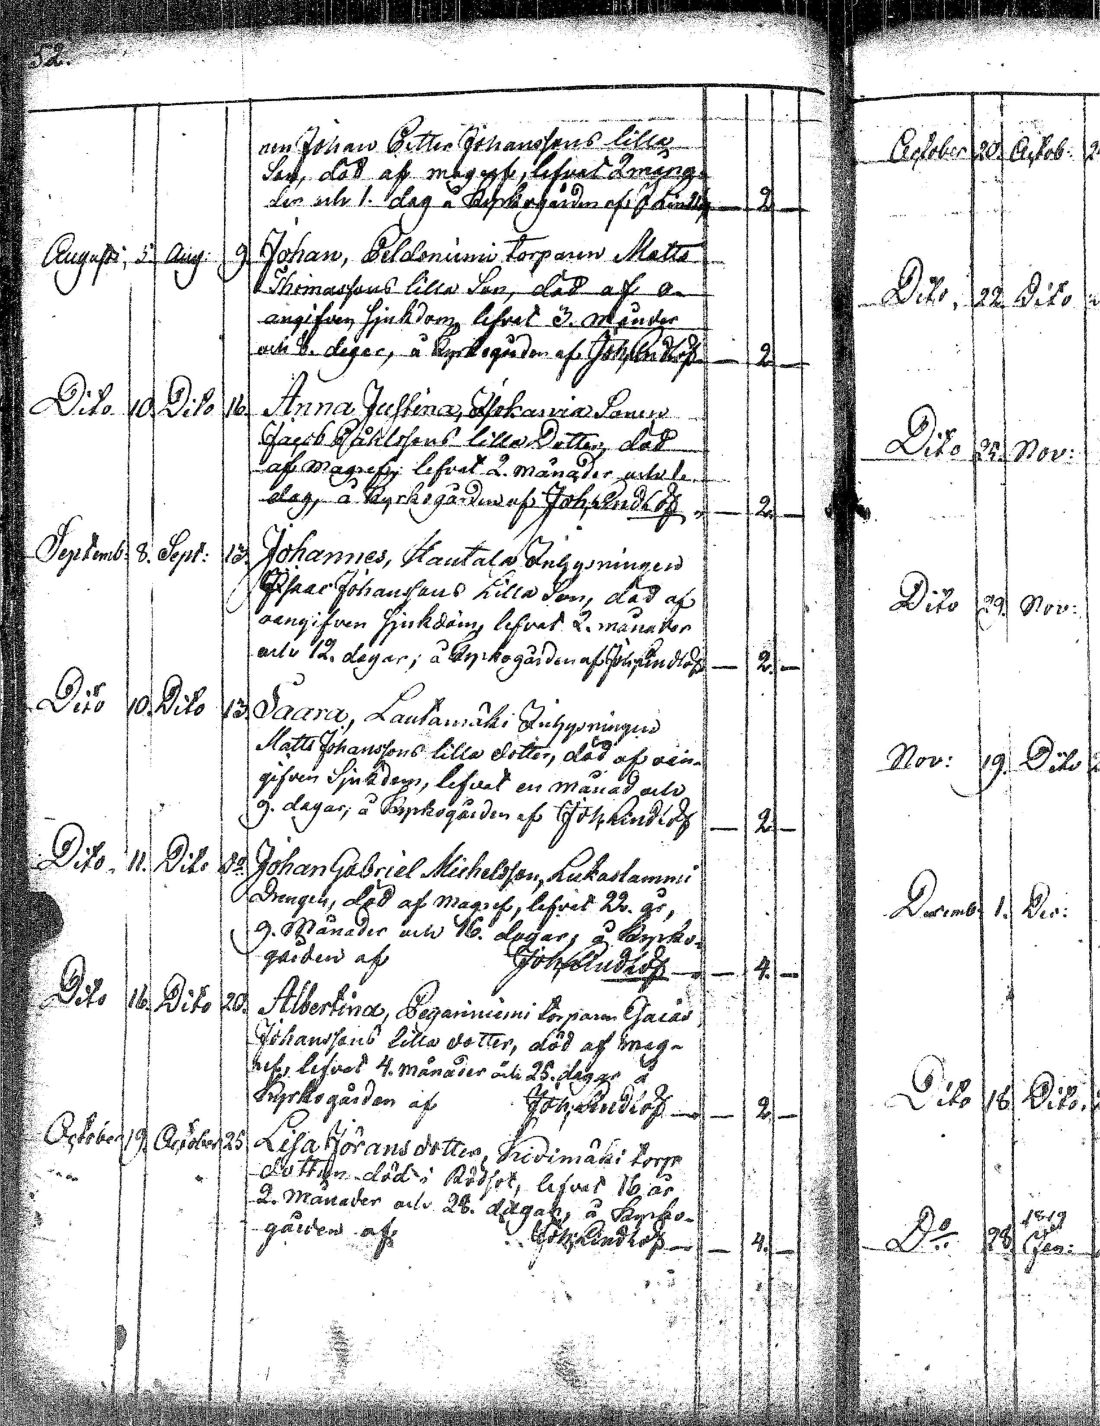 52.
nen Johan Petter Johanssons lilla
Son, död af magref, lefvat 2 måna-
der och 1. dag å Kyrkogården af J Lindlöf — 2 —
Augusti, 5. Aug: 9. Johan, Peldoniemi torparen Matts
Thomassons lilla Son, död af o-
angifven sjukdom, lefvat 3. Månader
och 8. dagar, å Kyrkogården af Joh, Lindlöf — 2
Dito. 10. Dito 16. Anna Justina, Sonen
Jacob lilla Dotter, död
af Magref, lefvat 2. månader och 1.
dag, å Kyrkogården af Joh, Lindlöf — 2.
Septemb: 8. Sept: 13. Johannes, Hautala Inhysningen
Isaac Johanssons Lilla Son, död af
oangifven sjukdom, lefvat 2. månader
och 12. dagar; å Kyrkogården af Joh, Lindlöf — 2. —
Dito 10. Dito 13. Saara, Lautamäki Inhysningen
Matts Johanssons lilla dotter, död af oan-
gifven Sjukdom, lefvat en månad och
9. dagar; å Kyrkogården af Joh, Lindlöf — 2 —
Dito. 11. Dito Johan Gabriel Michelsson, Lukaslammi
Drengen, död af magref, lefvat 22. år,
9. Månader och 16. dagar, å Kyrko-
gården af Joh, Lindlöf — 4. —
Dito 16. Dito 20. Albertina, torparen
Johanssons lilla dotter, död af mag-
ref, lefvat 4. månader och 25. dagar å
Kyrkogården af Joh, Lindlöf — 2. —
October 19. October 25 Lisa Jöransdotter, torp
dottren död i Rödsot, lefvat 16 år
2. Månader och 28. dagar, å Kyrko-
gården af Joh, Lindlöf — 4. —
October 20. Octob:
Dito. 22. Dito
Dito 25. Nov:
Dito 29. Nov:
Nov: 19. Dito
Decemb: 1. Dec:
Dito 18. Dito.
1819
Do 28 Jan: